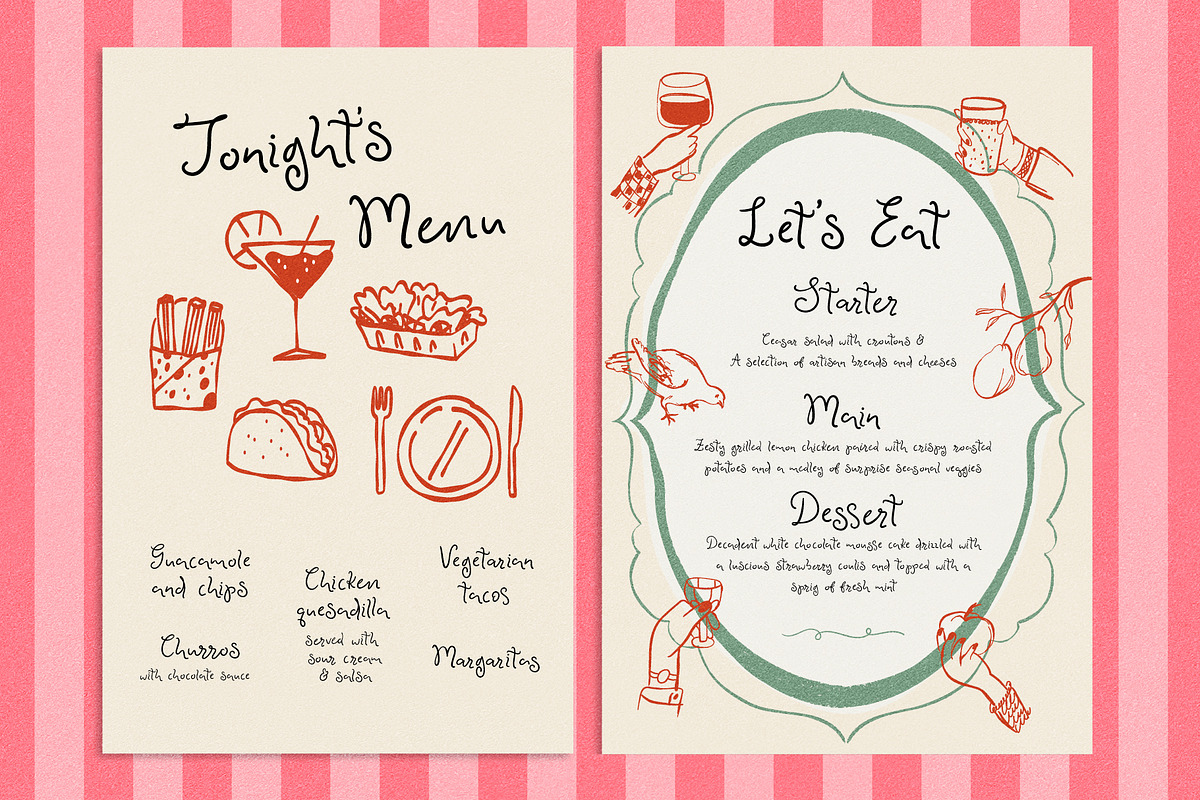 Tonight's
Menu
Guacamole
and chips
Chicken
quesadilla
served with
sour cream
& salsa
Vegetarian
tacos
Churros
with chocolate sauce
Margaritas
Let's Eat
Starter
Ceasar salad with croutons &
A selection of artisan breads and cheeses
Main
Zesty grilled lemon chicken paired with crispy roasted
potatoes and a medley of surprise seasonal veggies
Dessert
Decadent white chocolate mousse cake drizzled with
a luscious strawberry coulis and topped with a
sprig of fresh mint